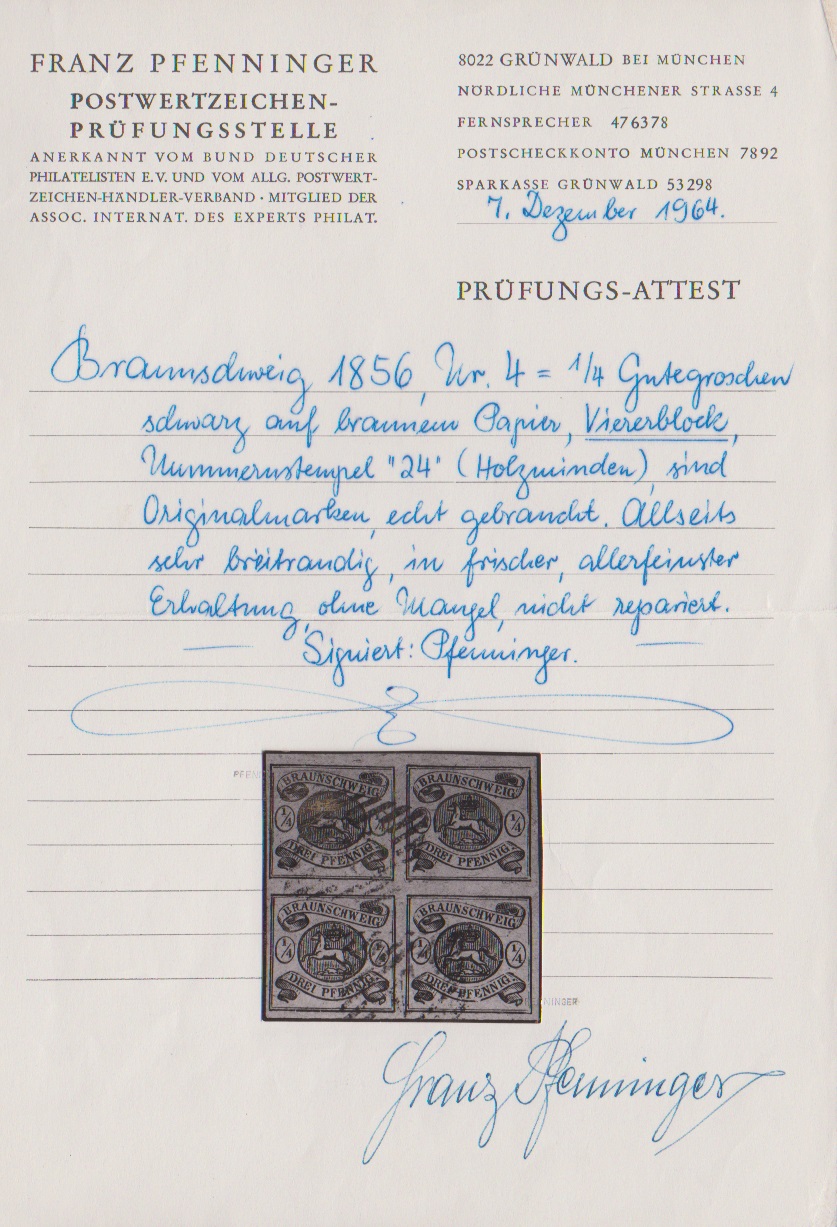 FRANZ PFENNINGER
POSTWERTZEICHEN-
PRÜFUNGSSTELLE
ANERKANNT VOM BUND DEUTSCHER
PHILATELISTEN E.V. UND VOM ALLG. POSTWERT-
ZEICHEN-HÄNDLER-VERBAND · MITGLIED DER
ASSOC. INTERNAT. DES EXPERTS PHILAT.
8022 GRÜNWALD BEI MÜNCHEN
NÖRDLICHE MÜNCHENER STRASSE 4
FERNSPRECHER 476378
POSTSCHECKKONTO MÜNCHEN 7892
SPARKASSE GRÜNWALD 53298
7. Dezember 1964.
PRÜFUNGS-ATTEST
Braunschweig 1856, Nr. 4 = 1/4 Gutegroschen
schwarz auf braunem Papier, Viererblock,
Nummernstempel "24" (Holzminden), sind
Originalmarken, echt gebraucht. Allseits
sehr breitrandig, in frischer, allerfeinster
Erhaltung, ohne Mängel, nicht repariert.
Signiert: Pfenninger.
BRAUNSCHWEIG BRAUNSCHWEIG
1/4 1/4
DREI PFENNIG DREI PFENNIG
BRAUNSCHWEIG BRAUNSCHWEIG
1/4 1/4 1/4 1/4
DREI PFENNIG DREI PFENNIG
Franz Pfenninger